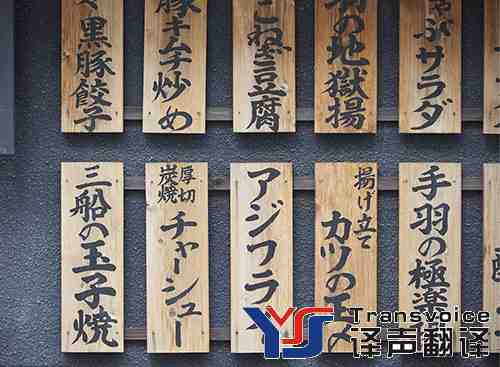 ゃぶサラダ
の地獄揚
豆腐
豚キムチ炒め
黒豚餃子
手羽の極楽
揚げ立て
カツの玉〆
アジフラ
厚切
炭焼
チャーシュー
三船の玉子焼
YS
Transvoice
译声翻译